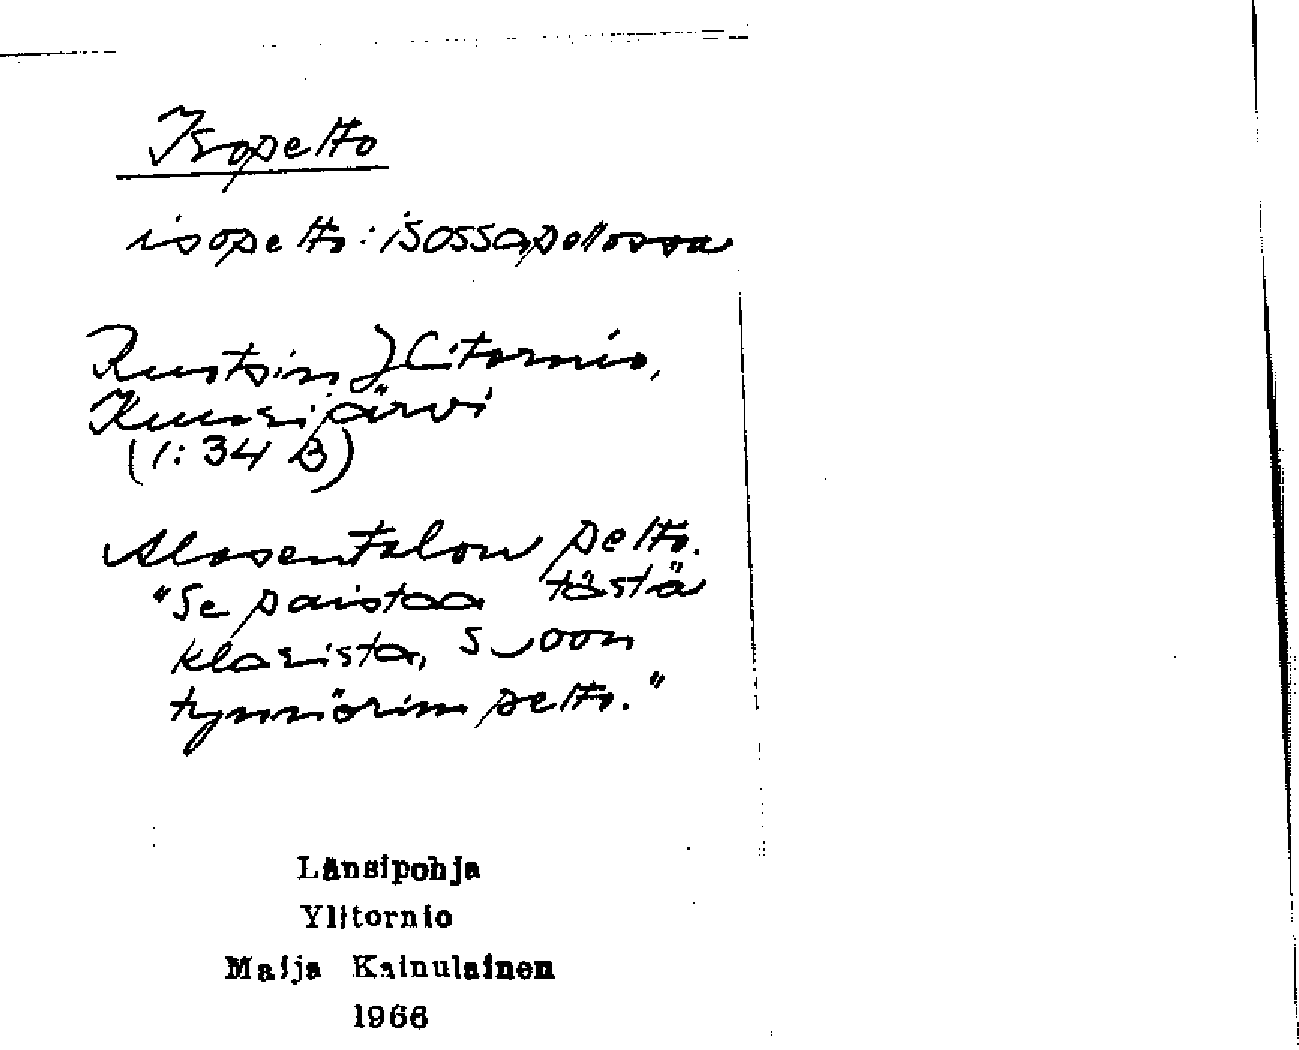 Isopelto
isopelto: isossapellossa
Ruotsin Ylitornio,
Kuusijärvi
(1:34 B)
Alasentalon pelto.
"Se paistaa tästä
klasista, s oon
tynnörin pelto."
Länsipohja
Ylitornio
Maija Kainulainen
1966